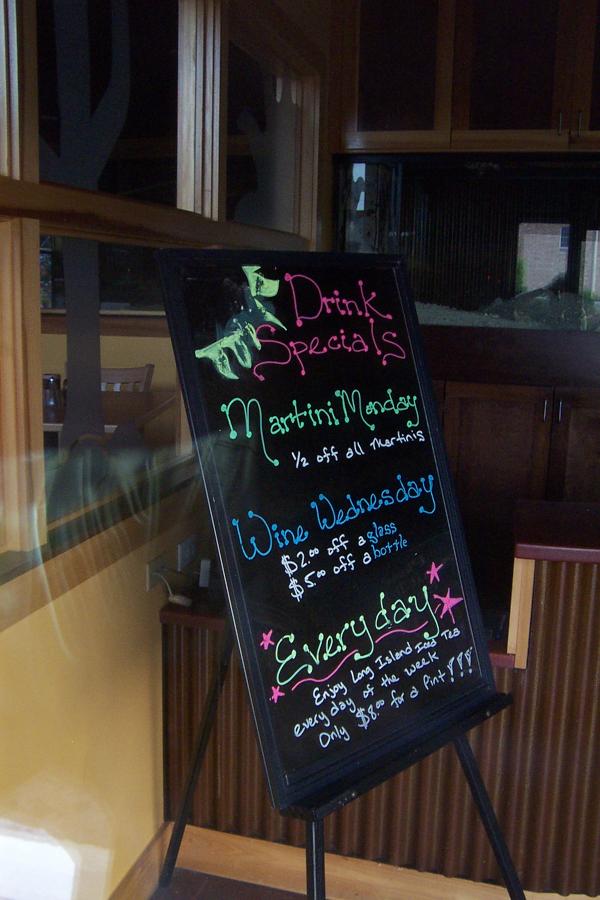 Drink
Specials
Martini Monday
1/2 off all Martinis
Wine Wednesday
$2.00 off a glass
$5.00 off a bottle
Everyday
Enjoy Long Island Iced Tea
every day of the week
Only $8.00 for a Pint!!!